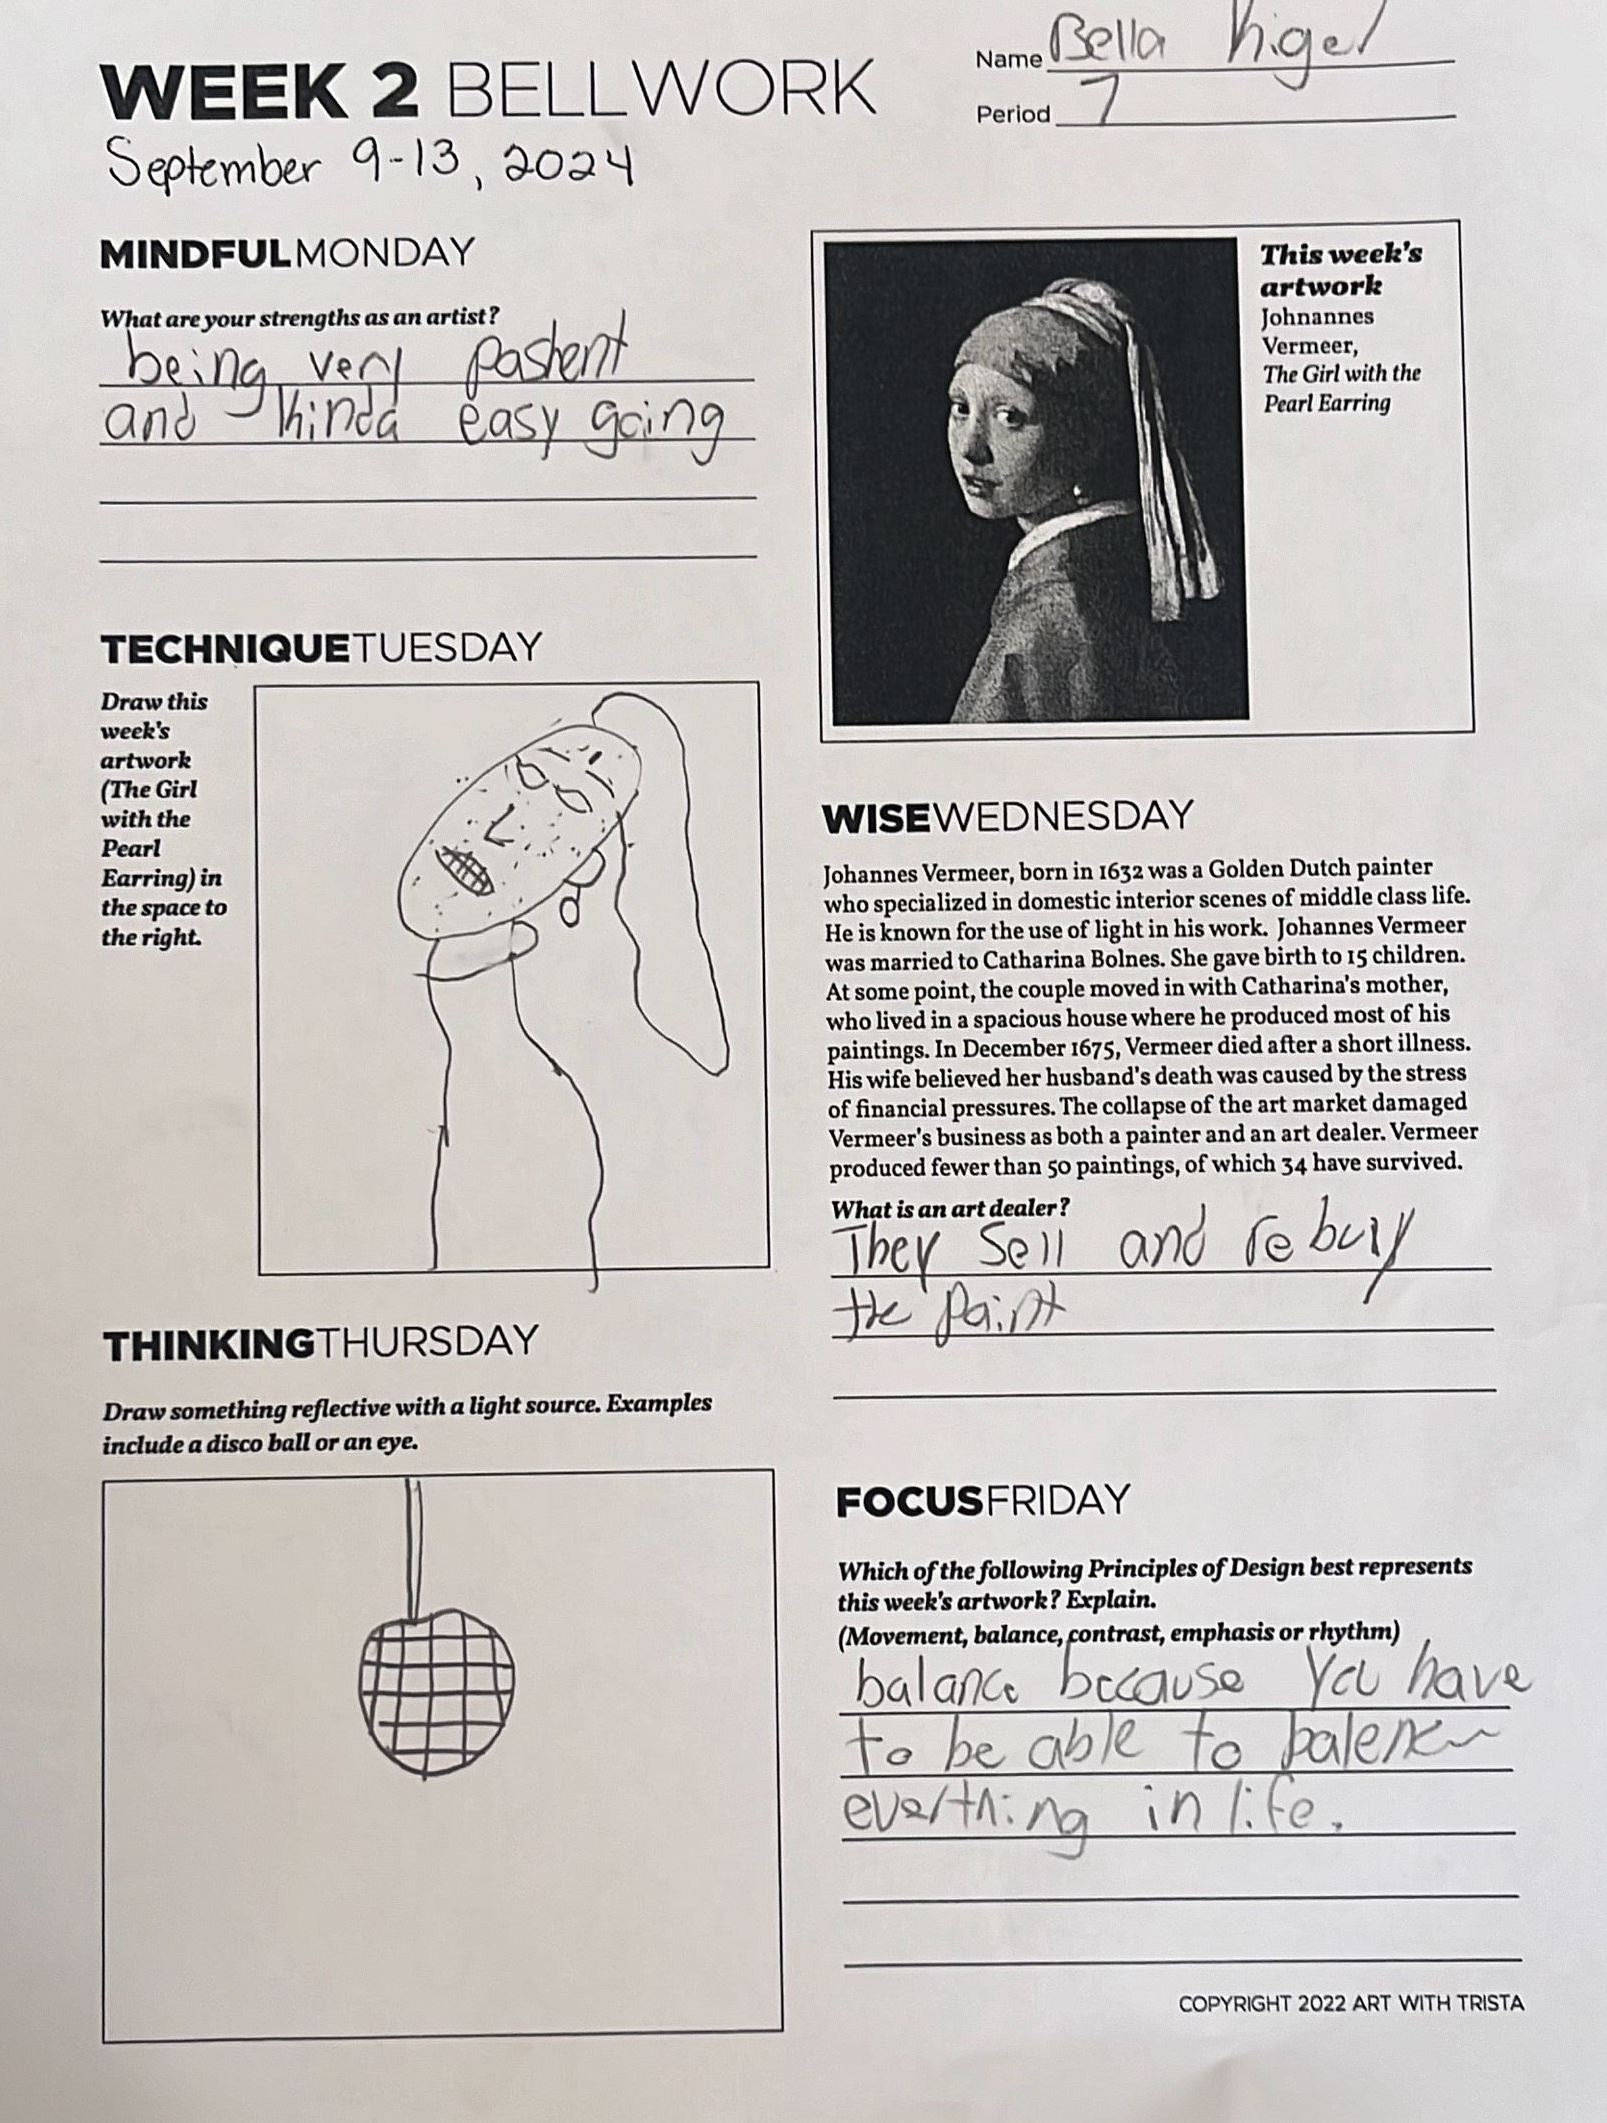 WEEK 2 BELLWORK
September 9-13, 2024
Name Bella Kigel
Period 7
MINDFULMONDAY
What are your strengths as an artist?
being very pashent
and kinda easy going
This week's
artwork
Johnannes
Vermeer,
The Girl with the
Pearl Earring
TECHNIQUETUESDAY
Draw this
week's
artwork
(The Girl
with the
Pearl
Earring) in
the space to
the right.
WISEWEDNESDAY
Johannes Vermeer, born in 1632 was a Golden Dutch painter
who specialized in domestic interior scenes of middle class life.
He is known for the use of light in his work. Johannes Vermeer
was married to Catharina Bolnes. She gave birth to 15 children.
At some point, the couple moved in with Catharina's mother,
who lived in a spacious house where he produced most of his
paintings. In December 1675, Vermeer died after a short illness.
His wife believed her husband's death was caused by the stress
of financial pressures. The collapse of the art market damaged
Vermeer's business as both a painter and an art dealer. Vermeer
produced fewer than 50 paintings, of which 34 have survived.
What is an art dealer?
They sell and rebuy
the paint
THINKINGTHURSDAY
Draw something reflective with a light source. Examples
include a disco ball or an eye.
FOCUSFRIDAY
Which of the following Principles of Design best represents
this week's artwork? Explain.
(Movement, balance, contrast, emphasis or rhythm)
balance because you have
to be able to
everthing in life.
COPYRIGHT 2022 ART WITH TRISTA